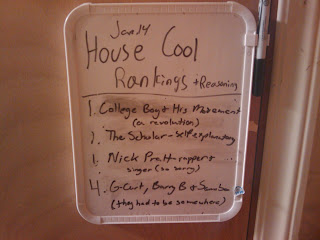 Jan 14
House Cool
Rankings + Reasoning
1. College Boy & His Movement
(a revolution)
2. The Scholar - self explanatory
Nick Pratt - rapper +
singer (so sorry)
4. G-Cert, Barry B &
(they had to be somewhere)